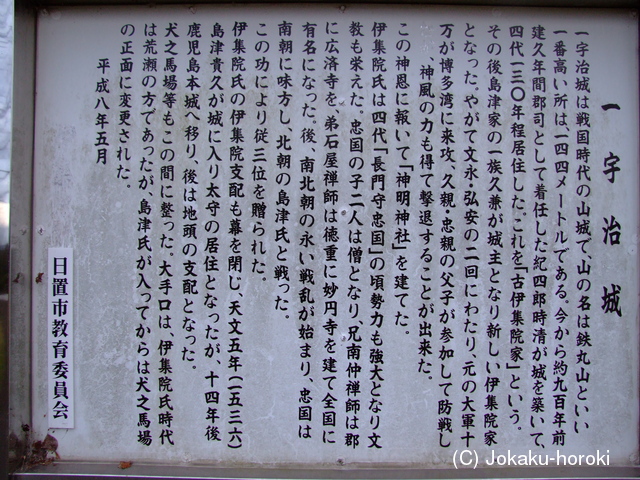 一宇治城
一宇治城は戦国時代の山城で、山の名は鉄丸山といい
一番高い所は、一四四メートルである。今から約九百年前
建久年間郡司として着任した紀四郎時清が城を築いて、
四代一三〇年程居住した。これを「古伊集院家」という。
その後島津家の一族久兼が城主となり新しい伊集院家
となった。やがて文永・弘安の二回にわたり、元の大軍十
万が博多湾に来攻、久親・忠親の父子が参加して防戦し
、神風の力も得て撃退することが出来た。
この神恩に報いて「神明神社」を建てた。
伊集院氏は四代「長門守忠国」の頃勢力も強大となり文
教も栄えた。忠国の子二人は僧となり、兄南仲禅師は郡
に広済寺を、弟石屋禅師は徳重に妙円寺を建て全国に
有名になった。後、南北朝の永い戦乱が始まり、忠国は
南朝に味方し、北朝の島津氏と戦った。
この功により従三位を贈られた。
伊集院氏の伊集院支配も幕を閉じ、天文五年(一五三六)
島津貴久が城に入り太守の居住となったが、十四年後
鹿児島本城へ移り、後は地頭の支配となった。
犬之馬場等もこの間に整った。大手口は、伊集院氏時代
は荒瀬の方であったが、島津氏が入ってからは犬之馬場
の正面に変更された。
平成八年五月
日置市教育委員会
(C) Jokaku-horoki